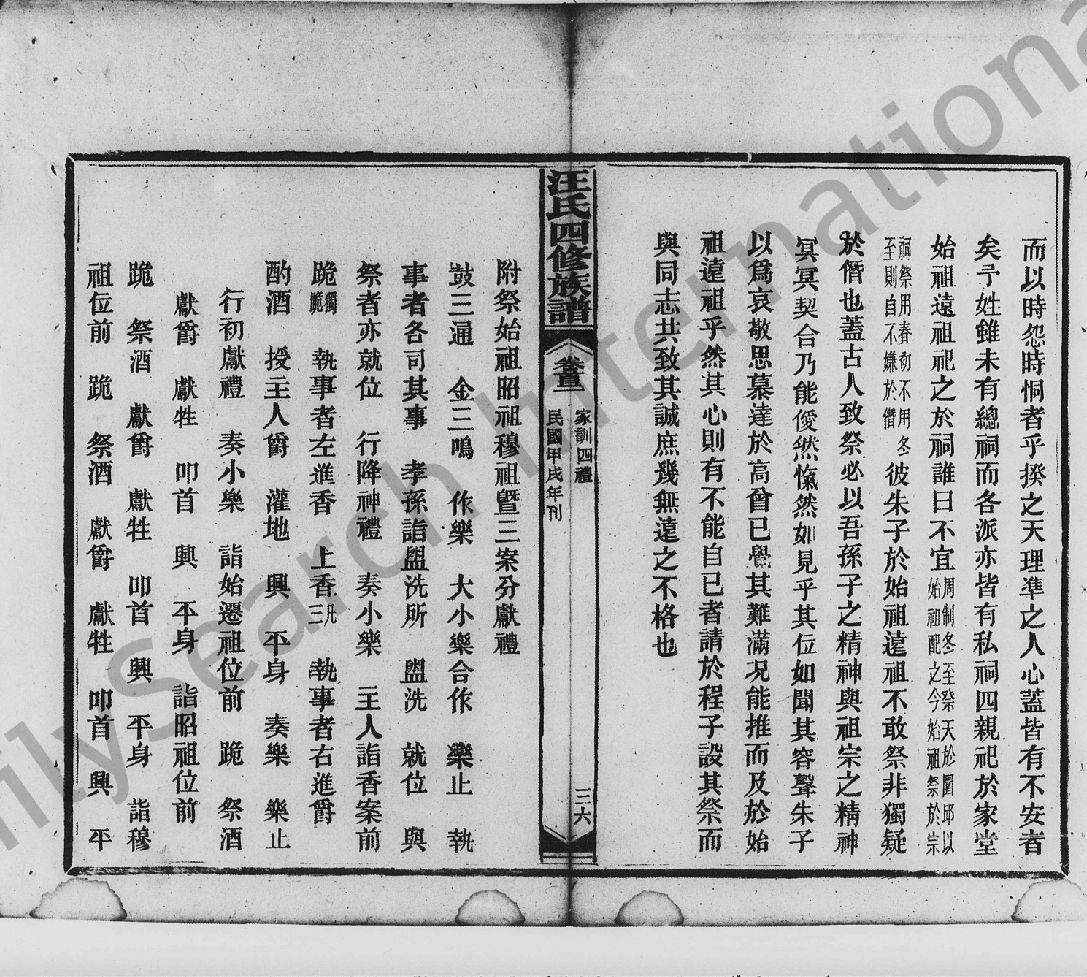 而以時怨時恫者乎揆之天理準之人心蓋皆有不安者
矣予姓雖未有總祠而各派亦皆有私祠四親祀於家堂
始祖遠祖祀之於祠誰曰不宜周制冬至祭天於圜邱以始祖配之今始祖祭於宗
祠祭用春初不用冬至則自不嫌於僭彼朱子於始祖遠祖不敢祭非獨疑
於僭也蓋古人致祭必以吾孫子之精神與祖宗之精神
冥冥契合乃能僾然愾然如見乎其位如聞其容聲朱子
以爲哀敬思慕達於高曾已覺其難滿况能推而及於始
祖遠祖乎然其心則有不能自已者請於程子設其祭而
與同志共致其誠庶幾無遠之不格也
汪氏四修族譜
卷三
家訓四禮
民國甲戌年刊
三六
附祭始祖昭祖穆祖曁三案分獻禮
鼓三通 金三鳴 作樂 大小樂合作 樂止 執
事者各司其事 孝孫詣盥洗所 盥洗 就位 與
祭者亦就位 行降神禮 奏小樂 主人詣香案前
跪獨跪 執事者左進香 上香凡三 執事者右進爵
酌酒 授主人爵 灌地 興 平身 奏樂 樂止
行初獻禮 奏小樂 詣始遷祖位前 跪 祭酒
獻爵 獻牲 叩首 興 平身 詣昭祖位前
跪 祭酒 獻爵 獻牲 叩首 興 平身 詣穆
祖位前 跪 祭酒 獻爵 獻牲 叩首 興 平
FamilySearch International